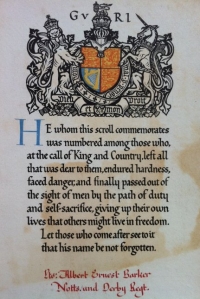 G V R I
HE whom this scroll commemorates
was numbered among those who,
at the call of King and Country, left all
that was dear to them, endured hardness,
faced danger, and finally passed out of
the sight of men by the path of duty
and self-sacrifice, giving up their own
lives that others might live in freedom.
Let those who come after see to it
that his name be not forgotten.
Pte. Albert Ernest Barker
Notts. and Derby Regt.